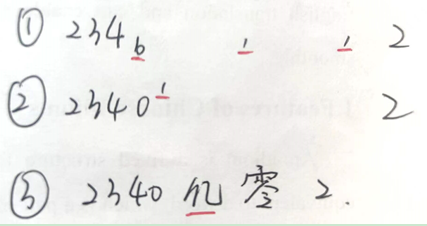 ① 234b ' ' 2
② 2340' 2
③ 2340 亿 零 2